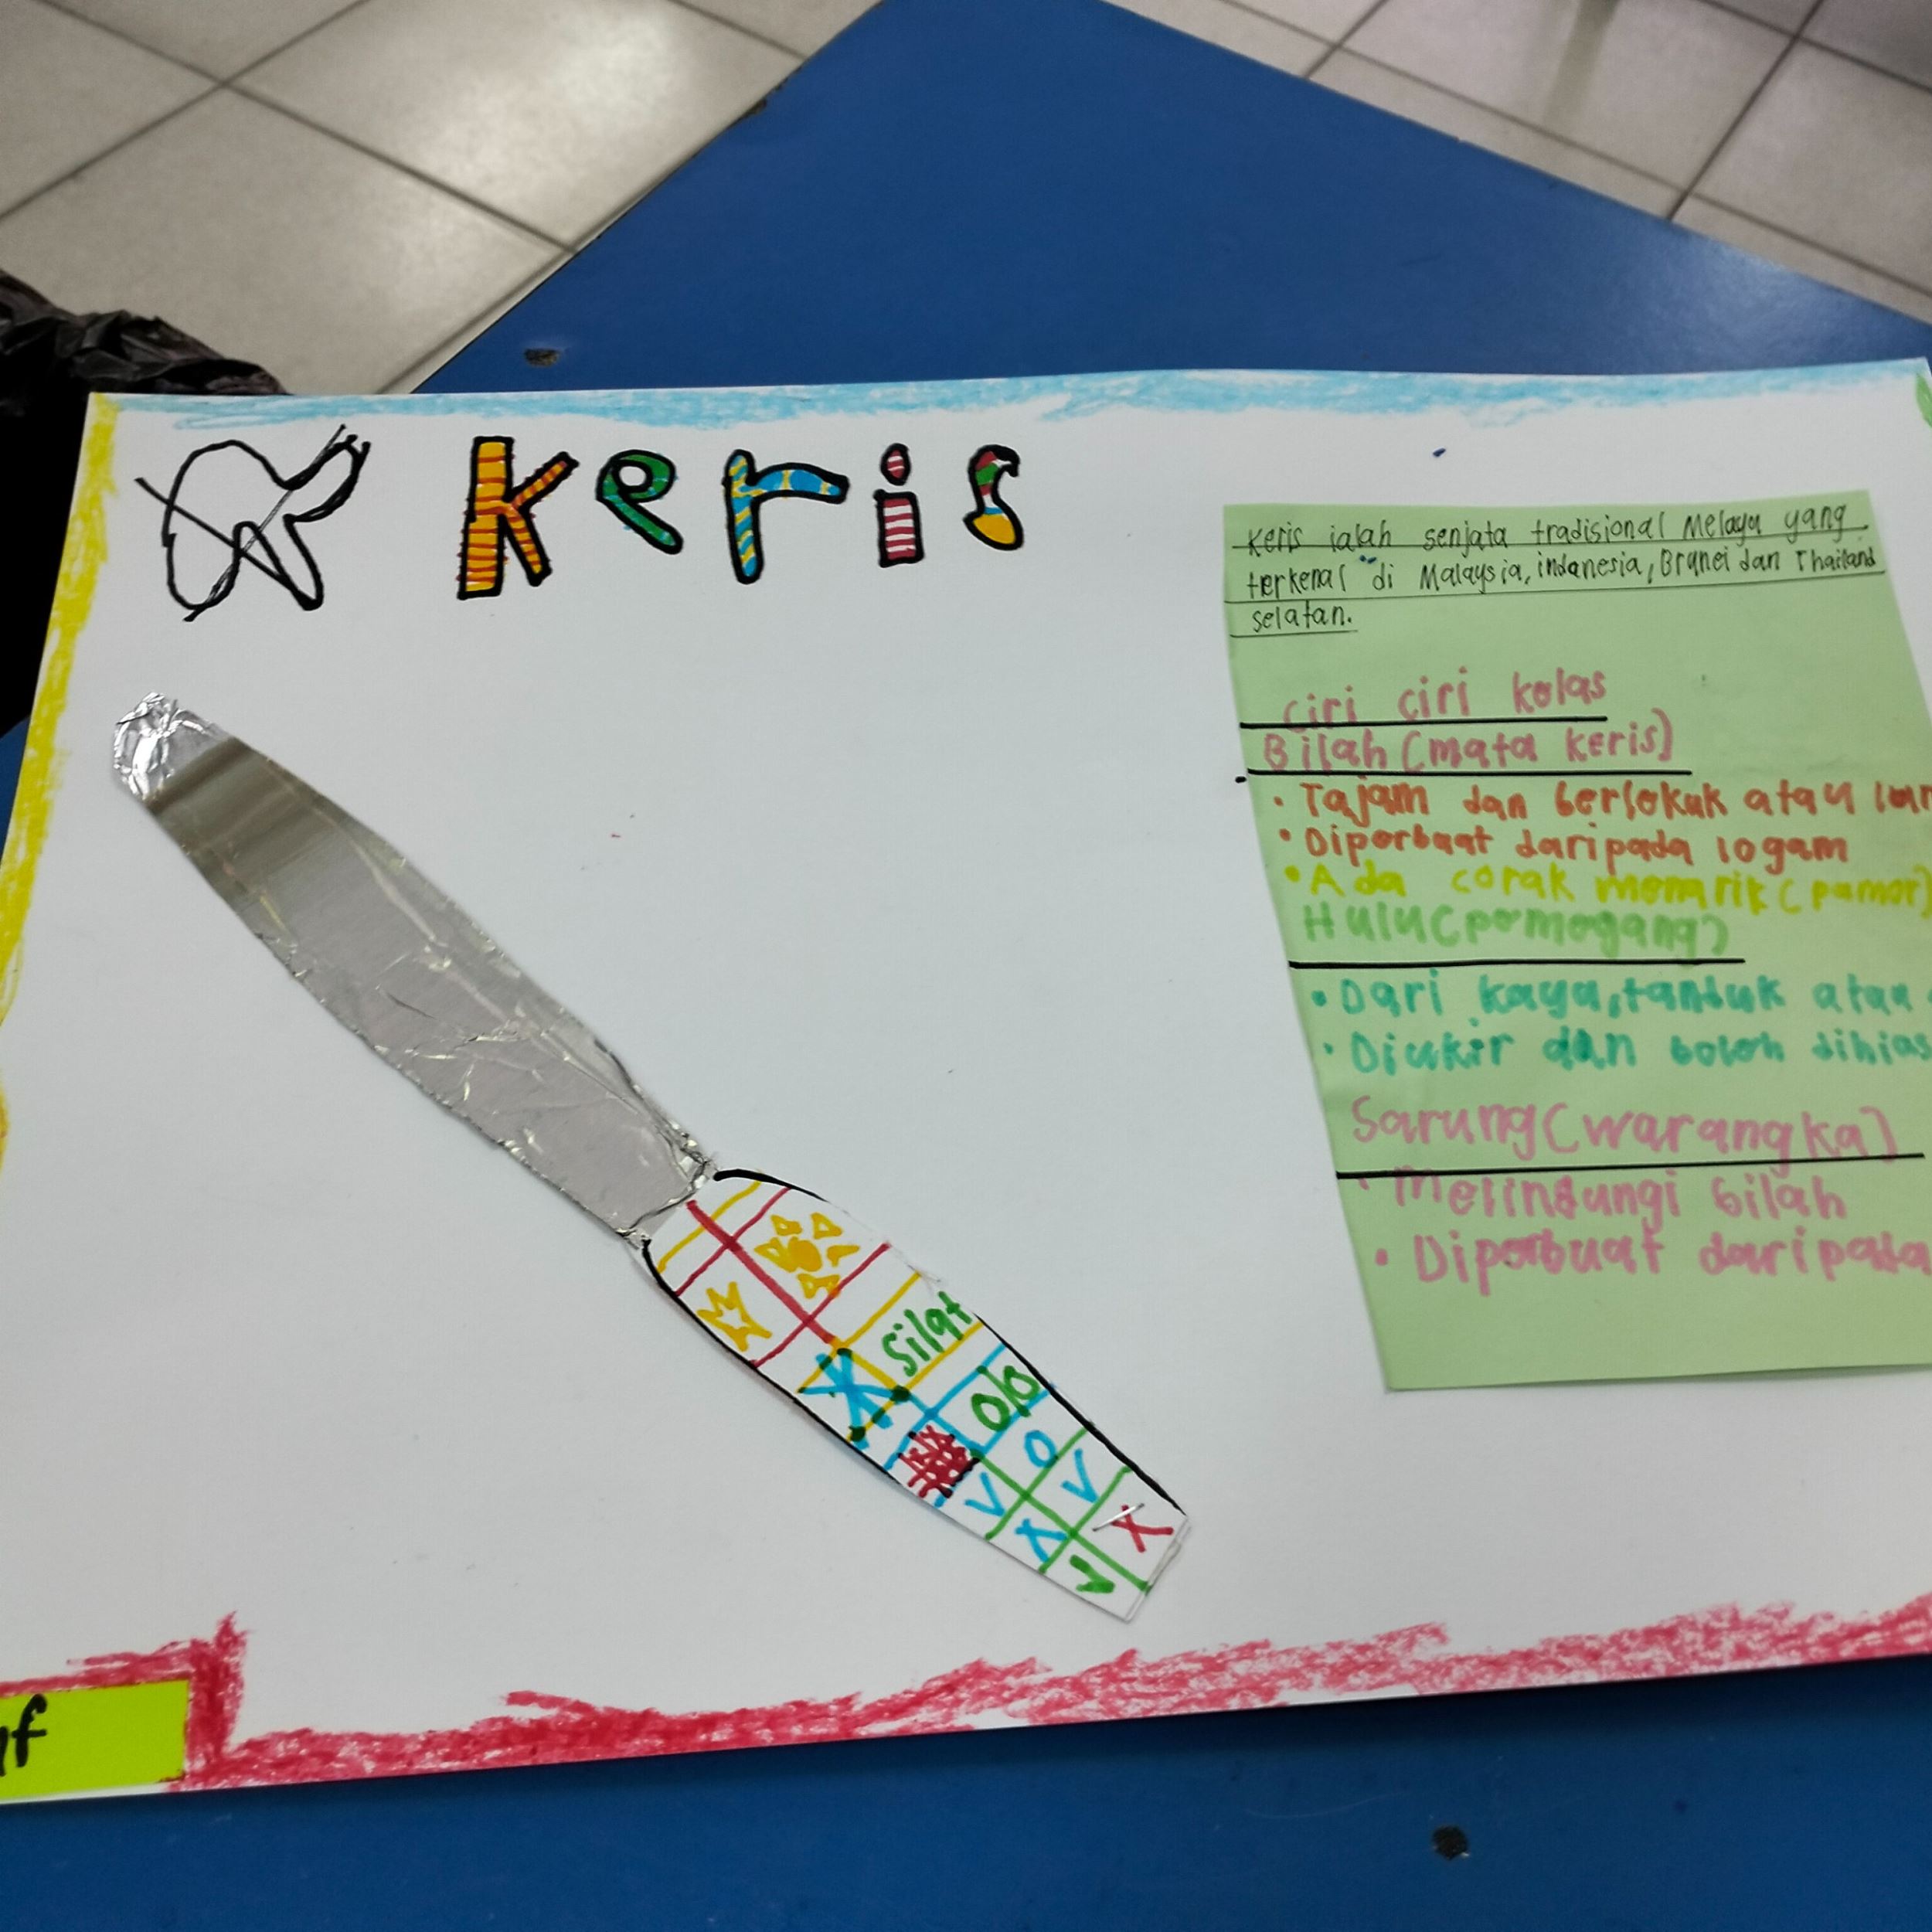 keris
Keris ialah senjata tradisional Melayu yang
terkenal di Malaysia, indanesia, Brunei dan Thailand
selatan.
Ciri ciri kelas
Bilah (mata keris)
• Tajam dan berlokuk atau
• Diperbuat daripada logam
• Ada corak menarik (pamor)
Hulu (pemegang)
• Dari kaya, tanduk atau
• Diukir dan boleh dihias
Sarung (warangka)
• Melindungi bilah
• Diperbuat daripada
Silat
O O
O
V V X
X V